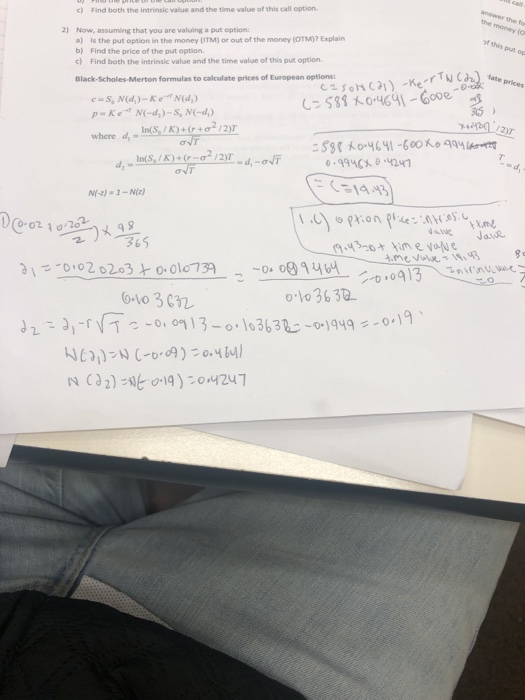 c) Find both the intrinsic value and the time value of this call option.
2) Now, assuming that you are valuing a put option:
a) Is the put option in the money (ITM) or out of the money (OTM)? Explain
b) Find the price of the put option.
c) Find both the intrinsic value and the time value of this put option.
answer the
the money (O
of this put op
Black-Scholes-Merton formulas to calculate prices of European options:
c = S₀ N(d₁) – K e^(-rT) N(d₂)
p = K e^(-rT) N(-d₂) – S₀ N(-d₁)
where d₁ = (ln(S₀ / K) + (r + σ² / 2)T) / (σ√T)
d₂ = (ln(S₀ / K) + (r – σ² / 2)T) / (σ√T) = d₁ – σ√T
N(-z) = 1 – N(z)
late prices
c = S0N(d1) - Ke^-rT N(d2)
C = 588 x 0.4641 - 600e
98
365
= 588 x 0.4641 - 600 x 0.994
0.9946 x 0.4247
= C = 19.43
/2)T
= d₁
1) (0.02 + 0.20² / 2) x 98 / 365
1.C) option price = intrinsic value + time value
19.43 = 0 + time value
time value = 19.43
= 0
d1 = -0.020203 + 0.010739 / 0.103632 = -0.009464 / 0.103632 = -0.0913
d2 = d1 - r√T = -0.0913 - 0.103632 = -0.1949 = -0.19
N(d1) = N(-0.09) = 0.4641
N(d2) = N(-0.19) = 0.4247